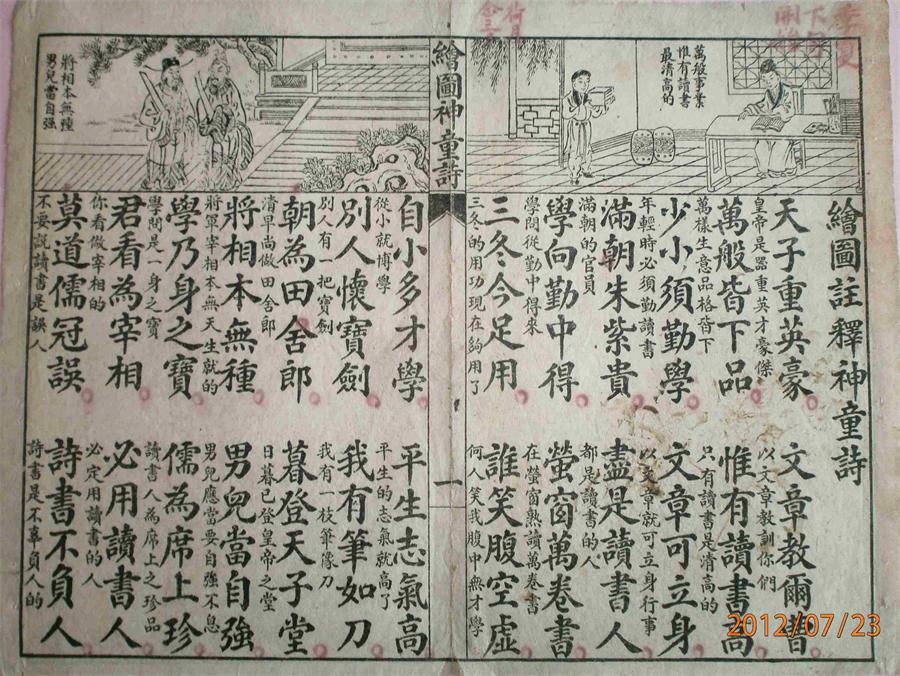 萬般事業
惟有讀書
最清高的
繪圖註釋神童詩
天子重英豪
皇帝是器重英才豪傑
文章教爾曹
以文章教訓你們
萬般皆下品
萬樣生意品格皆下
惟有讀書高
只有讀書是清高的
少小須勤學
年輕時必須勤讀書
文章可立身
以文章就可立身行事
滿朝朱紫貴
滿朝的官員
盡是讀書人
都是讀書的人
學向勤中得
學問從勤中得來
螢窗萬卷書
在螢窗熟讀萬卷書
三冬今足用
三冬的用功現在夠用了
誰笑腹空虛
何人笑我腹中無才學
繪圖神童詩
一
將相本無種
男兒當自强
自小多才學
從小就博學
平生志氣高
平生的志氣就高了
別人懷寶劍
別人有一把寶劍
我有筆如刀
我有一枝筆像刀
朝為田舍郎
清早尚做田舍郎
暮登天子堂
日暮已登皇帝之堂
將相本無種
將軍宰相本無天生就的
男兒當自強
男兒應當要自強不息
學乃身之寶
學問是一身之寶
儒為席上珍
讀書人為席上之珍品
君看為宰相
你看做宰相的
必用讀書人
必定用讀書的人
莫道儒冠誤
不要說讀書是誤人
詩書不負人
詩書是不辜負人的
2012/07/23